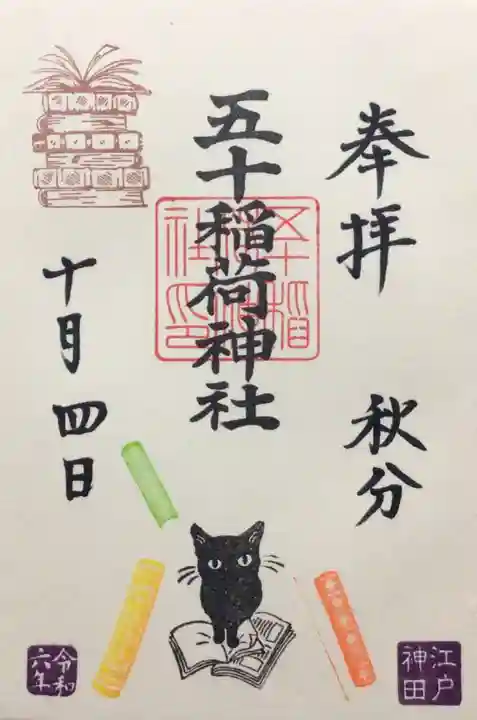 奉拝
秋分
五十稲荷神社
十月四日
江戸
神田
令和
六年